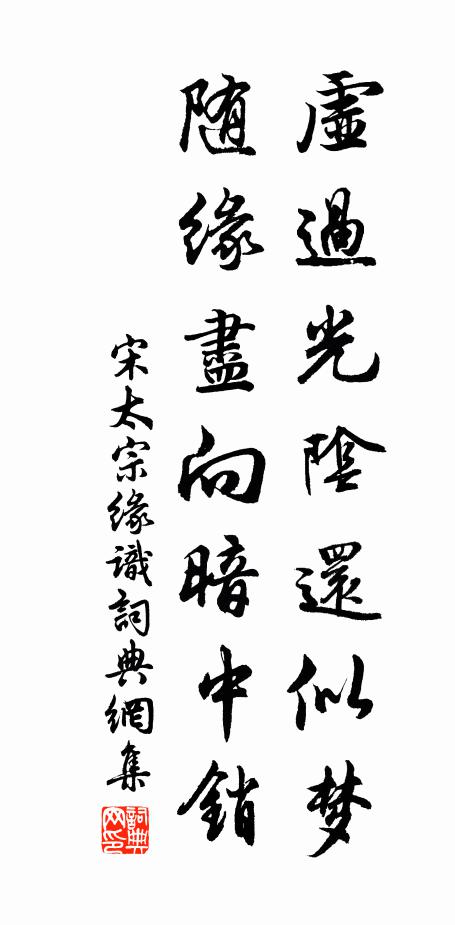 虛過光陰還似梦
随緣盡向暗中銷
宋太宗緣識詞典網集
詞典网印